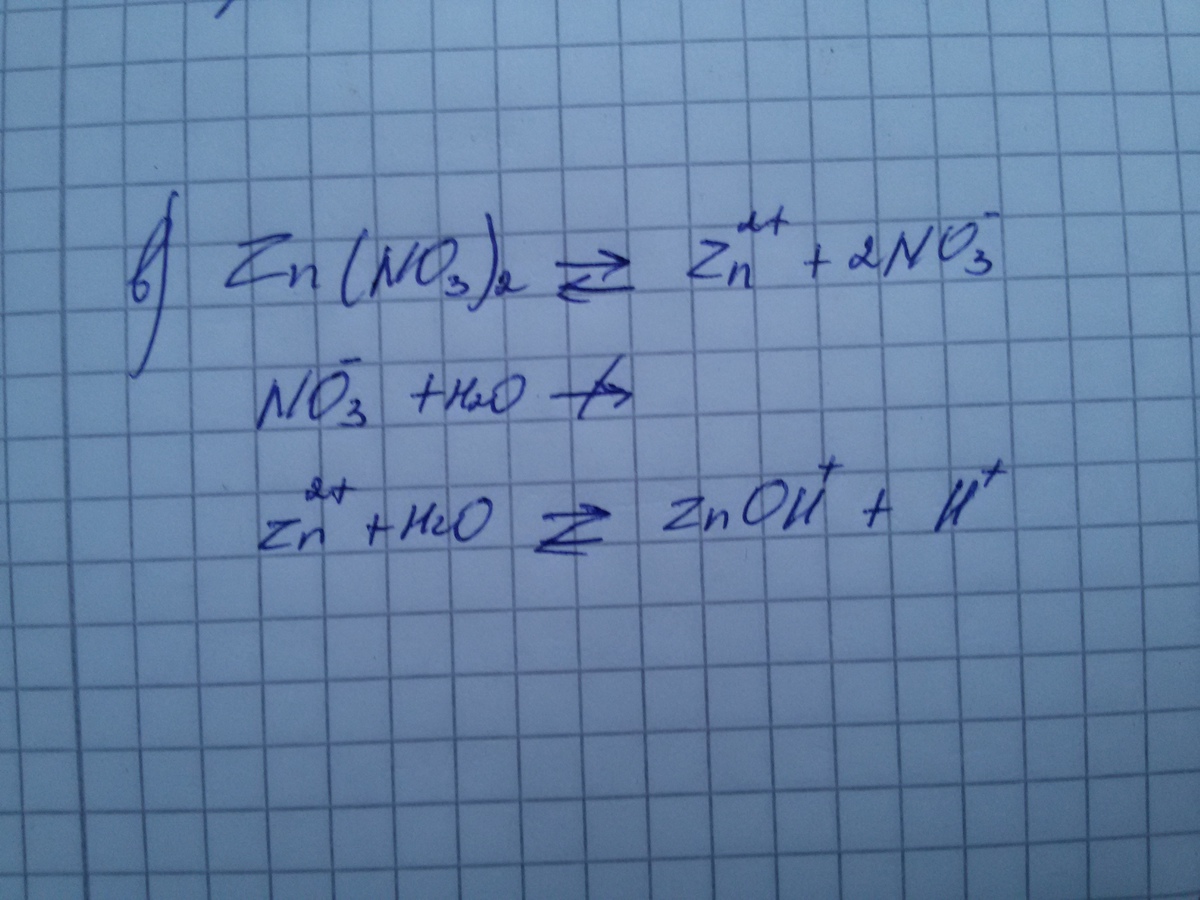 в) Zn(NO₃)₂ ⇄ Zn²⁺ + 2NO₃⁻
NO₃⁻ + H₂O ↛
Zn²⁺ + H₂O ⇄ ZnOH⁺ + H⁺